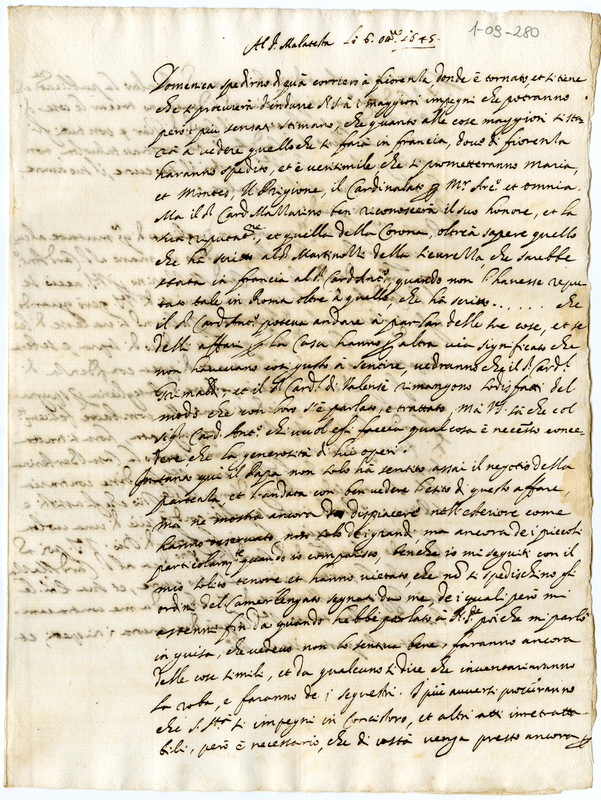 1-09-280
Al S.r Malatesta li 6. Ott.re 1645.
Domenica spedirno di quà corriero à fiorenza, donde è tornato, et si tiene
che si procurerà d'indurre S. S.tà à i maggiori impegni che potranno
però i più sensati stimano, che quanto alle cose maggiori si starà
à vedere quello che si farà in francia, dove di fiorenza
haranno spedito, et è verisimile che si prometteranno Maria,
et Montes, il Prigione, il Cardinalato Mr et omnia.
Ma il S. Card Mazzarino ben riconoscerà il suo honore, et la
sua riputat.ne, et quella della Corona, oltre à sapere quello
che hà scritto al S. Martinozzi della che sarebbe
stata in francia al S. Card Ant.o quando non l'havesse reputato
tale in Roma oltre à quello, che hà scritto . . . . . . che
il S. Card Ant.o poteva andare à parlar delle tre cose, et se
delli affari la Casa hanno altra via significato che
non havevano così gusto à sentire, vedranno che il S. Card.l
Grimaldi, et il S. Card.l di Valensè rimangono sodisfatti del
modo che con loro s'è parlato, e trattato, Ma V.S. sà che col
Sig. Card. Ant.o chi vuol che si faccia qualcosa è necess.o concedere
che la generosità di lui operi.
Intanto qui il Papa non solo hà sentito assai il negotio della
et l'andata con ben vedere l'esito di questo affare,
ma ne mostra ancora dispiacere nell'esteriore come
hanno osservato non solo de i grandi ma ancora de i piccoli
particolarm.te quando io comparisco, benche io mi seguiti con il
mio solito tenore et hanno vietato che nò si spedischino gli
ordini del Camerlengato segnati da me, de i quali però mi
astenni fin da quando hebbe parlato à S. S.tà poi che mi parlò
in guisa, che vedevo non lo sentiva bene, faranno ancora
delle cose simili, et da qualcuno si dice che inventariaranno
la roba, e faranno de i sequestri. I più avversi procurano
che S. S.tà si impegni in Concistoro, et altri atti inretrattabili,
però è necessario, che di costà venga presto ancora